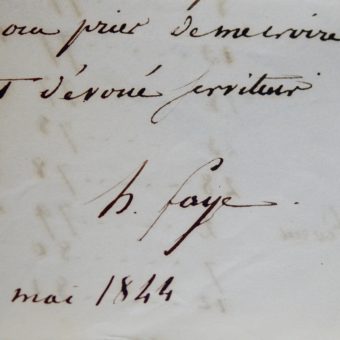 prier de me croire
dévoué serviteur
h. faye.
mai 1844